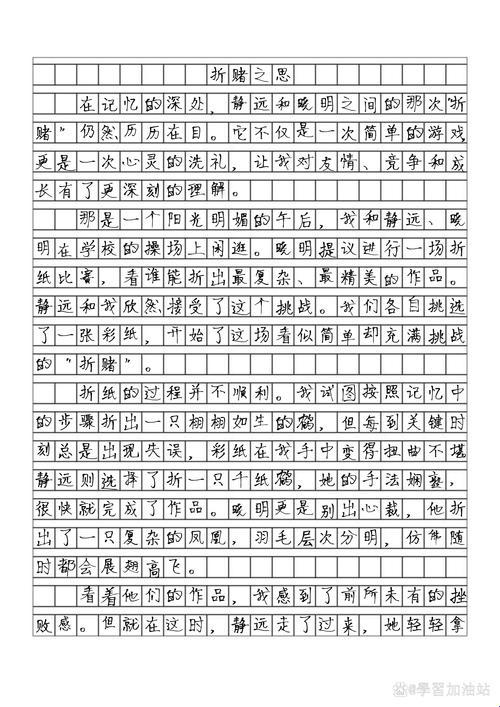 折赌之思
在记忆的深处，静远和晚明之间的那次“折
赌”仍然历历在目。它不仅是一次简单的游戏，
更是一次心灵的洗礼，让我对友情、竞争和成
长有了更深刻的理解。
那是一个阳光明媚的午后，我和静远、晚
明在学校的操场上闲逛。晚明提议进行一场折
纸比赛，看谁能折出最复杂、最精美的作品。
静远和我欣然接受了这个挑战。我们各自挑选
了一张彩纸，开始了这场看似简单却充满挑战
的“折赌”。
折纸的过程并不顺利。我试图按照记忆中
的步骤折出一只栩栩如生的鹤，但每到关键时
刻总是出现失误，彩纸在我手中变得扭曲不堪
静远则选择了折一只千纸鹤，她的手法娴熟，
很快就完成了作品。晚明更是别出心裁，他折
出了一只复杂的凤凰，羽毛层次分明，仿佛随
时都会展翅高飞。
看着他们的作品，我感到了前所未有的挫
败感。但就在这时，静远走了过来，她轻轻拿
@學習加油站